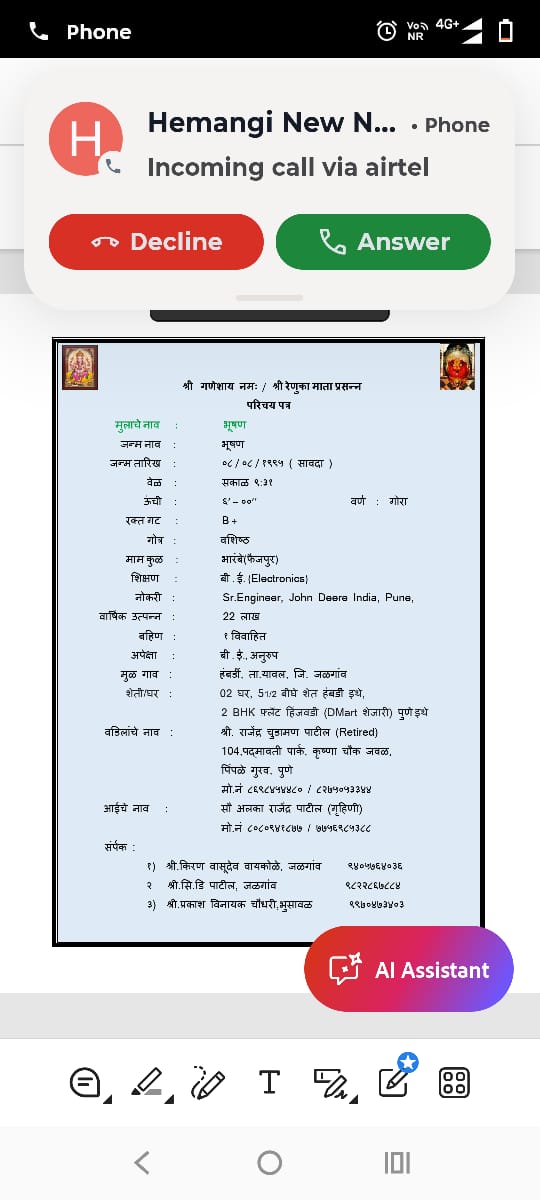 Phone
VoD NR 4G+
H
Hemangi New N... • Phone
Incoming call via airtel
Decline
Answer
श्री गणेशाय नमः / श्री रेणुका माता प्रसन्न
परिचय पत्र
मुलाचे नाव : भूषण
जन्म नाव : भूषण
जन्म तारिख : ०८ / ०८ / १९९५ ( सावदा )
वेळ : सकाळ ९:३१
ऊंची : ६' – ००"
वर्ण : गोरा
रक्त गट : B +
गोत्र : वशिष्ठ
माम कुळ : भारंबे(फैजपुर)
शिक्षण : बी .ई. (Electronics)
नोकरी : Sr.Engineer, John Deere India, Pune,
वार्षिक उत्पन्न : 22 लाख
बहिण : १ विवाहित
अपेक्षा : बी . ई., अनुरुप
मुळ गाव : हंबर्डी, ता.यावल, जि. जळगांव
शेती/घर : 02 घर, 51/2 बीघे शेत हंबर्डी इथे,
2 BHK फ्लॅट हिंजवडी (DMart शेजारी) पुणे इथे
वडिलांचे नाव : श्री. राजेंद्र चुडामण पाटील (Retired)
104,पद्मावती पार्क, कृष्णा चौक जवळ,
पिंपळे गुरव, पुणे
मो.नं ८६९८४५४४८० / ८२७५०५३३४४
आईचे नाव : सौ अलका राजेंद्र पाटील (गृहिणी)
मो.नं ८०८०९४१८७७ / ७७५६९८५३८८
संर्पक :
१) श्री.किरण वासूदेव वायकोळे, जळगांव ९४०५७६४०३६
२ श्री.सि.डि पाटील, जळगांव ९८२२८६७८८४
३) श्री.प्रकाश विनायक चौधरी,भुसावळ ९९७०४७३४०३
AI Assistant
T